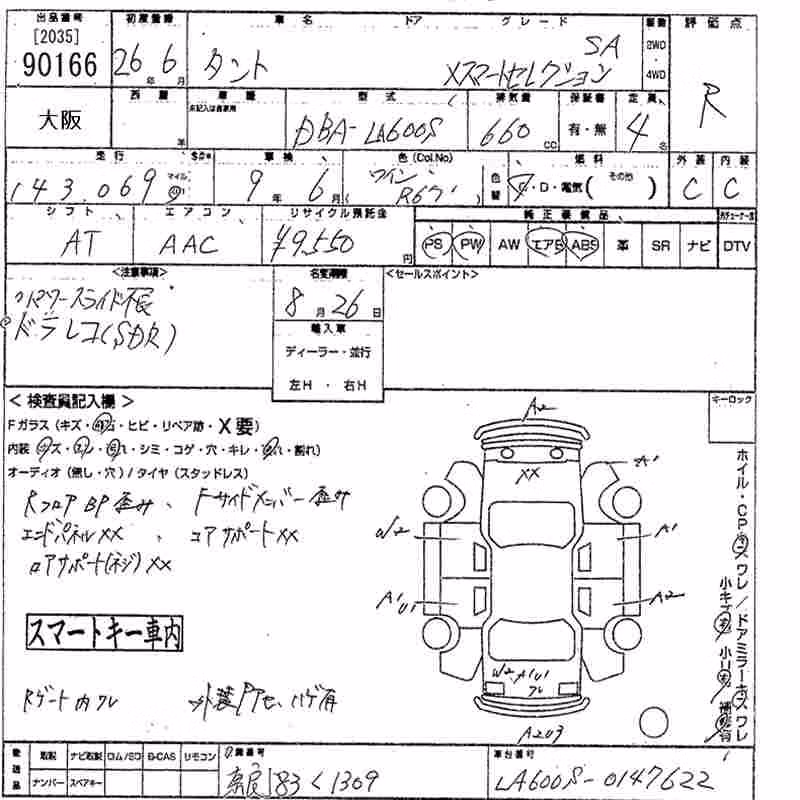 出品番号 初度登録 車名 ドア グレード 駆動 評価点
[2035]
90166 26年 6月 タント XスマートセレクションSA 2WD 4WD R
大阪 西暦 年 車歴 未記入は自家用 型式 排気量 保証書 定員
DBA-LA600S 660cc 有・無 4名
走行 車検 色(Col.No) 色替 燃料 外装 内装
143,069 マイル 9年 6月 ワイン R67 G・D・電気( その他 ) C C
シフト エアコン リサイクル預託金 純正装備品
AT AAC ¥9,550円 PS PW AW エアB ABS 革 SR ナビ DTV
<注意事項> 名変期限 <セールスポイント>
パワースライド不良 8月26日
ドラレコ(SDR) 輸入車
ディーラー・並行
左H・右H
<検査員記入欄> キーロック
Fガラス(キズ・飛石・ヒビ・リペア跡・X要)
内装(キズ・スレ・汚れ・シミ・コゲ・穴・キレ・割れ)
オーディオ(無し・穴)/タイヤ(スタッドレス)
RフロアBP歪み、Fサイドメンバー歪み
エンドパネルXX、コアサポートXX
ロアサポート(ネジ)XX
スマートキー車内
Rゲート内ワレ 外装Pアセ、ハゲ有
A2
XX
A1
W2 A1
A1 U1 A2
W2 A1U1
ワレ
A2U3
ホイル・CPキズワレ/ドアミラーキズワレ
小キズ有 小U有 補修有
後送品 取説 ナビ取説 ロム/SD B-CAS リモコン 登録番号 車台番号
ナンバー スペアキー 奈良 183 く 1309 LA600S-0147622